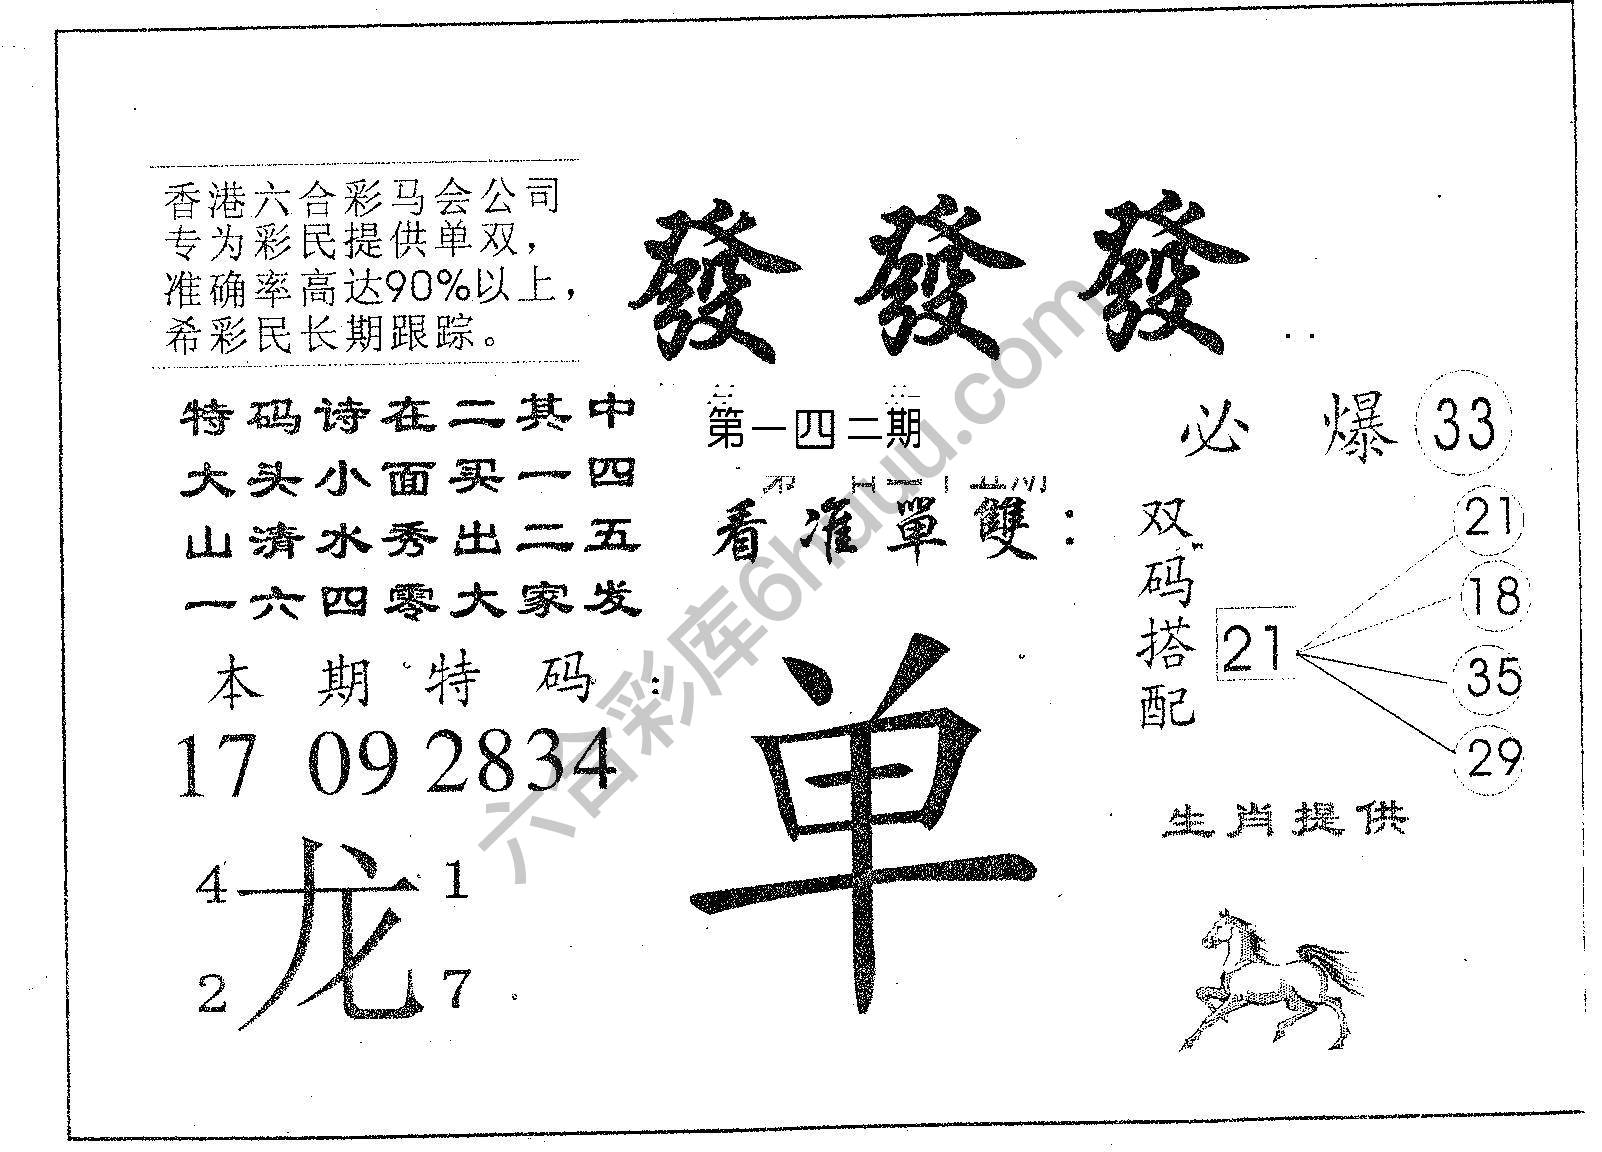 香港六合彩马会公司
专为彩民提供单双，
准确率高达90%以上，
希彩民长期跟踪。
發 發 發 ..
特码诗在二其中
大头小面买一四
山清水秀出二五
一六四零大家发
第一四二期
看准單雙：
必 爆 33
双码搭配
21
21
18
35
29
本期特码：
17 09 28 34
龙
4 1
2 7
单
生肖提供
六合彩库6huu.com